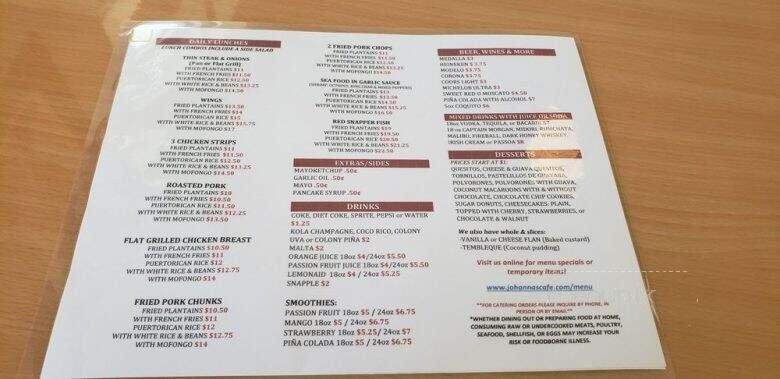 DAILY LUNCHES
LUNCH COMBOS INCLUDE A SIDE SALAD
THIN STEAK & ONIONS
(Pan or Flat Grill)
FRIED PLANTAINS $11
WITH FRENCH FRIES $11.50
PUERTORICAN RICE $12.50
WITH WHITE RICE & BEANS $13.25
WITH MOFONGO $14.50
WINGS
FRIED PLANTAINS $13.50
WITH FRENCH FRIES $14
PUERTORICAN RICE $15
WITH WHITE RICE & BEANS $15.75
WITH MOFONGO $17
3 CHICKEN STRIPS
FRIED PLANTAINS $11
WITH FRENCH FRIES $11.50
PUERTORICAN RICE $12.50
WITH WHITE RICE & BEANS $13.25
WITH MOFONGO $14.50
ROASTED PORK
FRIED PLANTAINS $10
WITH FRENCH FRIES $10.50
PUERTORICAN RICE $11.50
WITH WHITE RICE & BEANS $12.25
WITH MOFONGO $13.50
FLAT GRILLED CHICKEN BREAST
FRIED PLANTAINS $10.50
WITH FRENCH FRIES $11
PUERTORICAN RICE $12
WITH WHITE RICE & BEANS $12.75
WITH MOFONGO $14
FRIED PORK CHUNKS
FRIED PLANTAINS $10.50
WITH FRENCH FRIES $11
PUERTORICAN RICE $12
WITH WHITE RICE & BEANS $12.75
WITH MOFONGO $14
2 FRIED PORK CHOPS
FRIED PLANTAINS $11
WITH FRENCH FRIES $11.50
PUERTORICAN RICE $12.50
WITH WHITE RICE & BEANS $13.25
WITH MOFONGO $14.50
SEA FOOD IN GARLIC SAUCE
(SHRIMP, OCTOPUS, KING CRAB & MIXED PEPPERS)
FRIED PLANTAINS $13
WITH FRENCH FRIES $13.50
PUERTORICAN RICE $14.50
WITH WHITE RICE & BEANS $15.25
WITH MOFONGO $16.50
RED SNAPPER FISH
FRIED PLANTAINS $19
WITH FRENCH FRIES $19.50
PUERTORICAN RICE $20.50
WITH WHITE RICE & BEANS $21.25
WITH MOFONGO $22.50
EXTRAS/SIDES
MAYOKETCHUP .50¢
GARLIC OIL .50¢
MAYO .50¢
PANCAKE SYRUP .50¢
DRINKS
COKE, DIET COKE, SPRITE, PEPSI or WATER
$1.25
KOLA CHAMPAGNE, COCO RICO, COLONY
UVA or COLONY PIÑA $2
MALTA $2
ORANGE JUICE 18oz $4/24oz $5.50
PASSION FRUIT JUICE 18oz $4/24oz$5.50
LEMONAID 18oz $4 / 24oz $5.25
SNAPPLE $2
SMOOTHIES:
PASSION FRUIT 18oz $5 / 24oz $6.75
MANGO 18oz $5 / 24oz $6.75
STRAWBERRY 18oz $5.25/ 24oz $7
PIÑA COLADA 18oz $5 / 24oz $6.75
BEER, WINES & MORE
MEDALLA $3
HEINEKEN $ 3.75
MODELO $3.75
CORONA $3.75
COORS LIGHT $3
MICHELOB ULTRA $3
SWEET RED O MOSCATO $4.50
PIÑA COLADA WITH ALCOHOL $7
5oz COQUITO $6
MIXED DRINKS WITH JUICE OR SODA
18oz VODKA, TEQUILA, or BACARDI $7
18 oz CAPTAIN MORGAN, MIDORI, RUMCHATA,
MALIBU, FIREBALL, DARK HONEY WHISKEY,
IRISH CREAM or PASSOA $8
DESSERTS
PRICES START AT $1
QUESITOS, CHEESE & GUAVA QUESITOS,
TORNILLOS, PASTELILLOS DE GUAYABA,
POLVORONES, POLVORONES WITH GUAVA,
COCONUT MACAROONS WITH & WITHOUT
CHOCOLATE, CHOCOLATE CHIP COOKIES,
SUGAR DONUTS, CHEESECAKES: PLAIN,
TOPPED WITH CHERRY, STRAWBERRIES, or
CHOCOLATE & WALNUT
We also have whole & slices:
-VANILLA or CHEESE FLAN (Baked custard)
-TEMBLEQUE (Coconut pudding)
Visit us online for menu specials or
temporary items!
www.johannascafe.com/menu
**FOR CATERING ORDERS PLEASE INQUIRE BY PHONE, IN
PERSON OR BY EMAIL**
*WHETHER DINING OUT OR PREPARING FOOD AT HOME,
CONSUMING RAW OR UNDERCOOKED MEATS, POULTRY,
SEAFOOD, SHELLFISH, OR EGGS MAY INCREASE YOUR
RISK OF FOODBORNE ILLNESS.